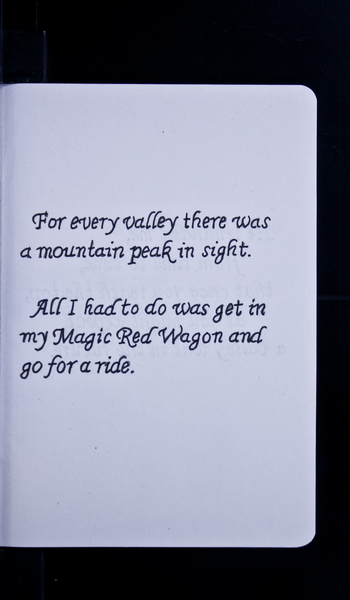 For every valley there was
a mountain peak in sight.
All I had to do was get in
my Magic Red Wagon and
go for a ride.